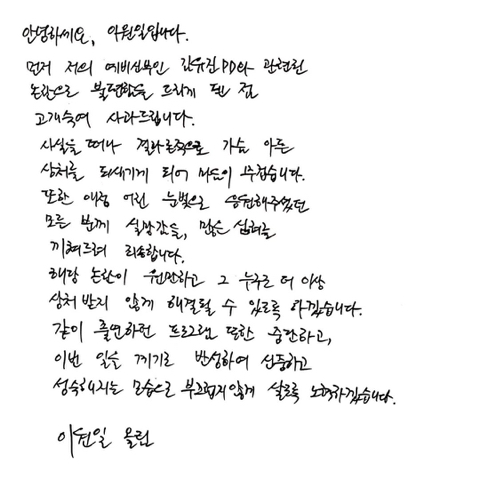 안녕하세요, 이원일입니다.
먼저 저의 예비신부인 김유진PD와 관련된
논란으로 불편함을 드리게 된 점
고개숙여 사과드립니다.
사실을 떠나 결과론적으로 가슴 아픈
상처를 되새기게 되어 마음이 무겁습니다.
또한 애정 어린 눈빛으로 응원해주셨던
모든 분께 실망감을, 많은 심려를
끼쳐드려 죄송합니다.
해당 논란이 원만하고 그 누구도 더 이상
상처 받지 않게 해결될 수 있도록 하겠습니다.
같이 출연하던 프로그램 또한 중단하고,
이번 일을 계기로 반성하며 신중하고
성숙해지는 모습으로 부끄럽지않게 살도록 노력하겠습니다.
이원일 올림